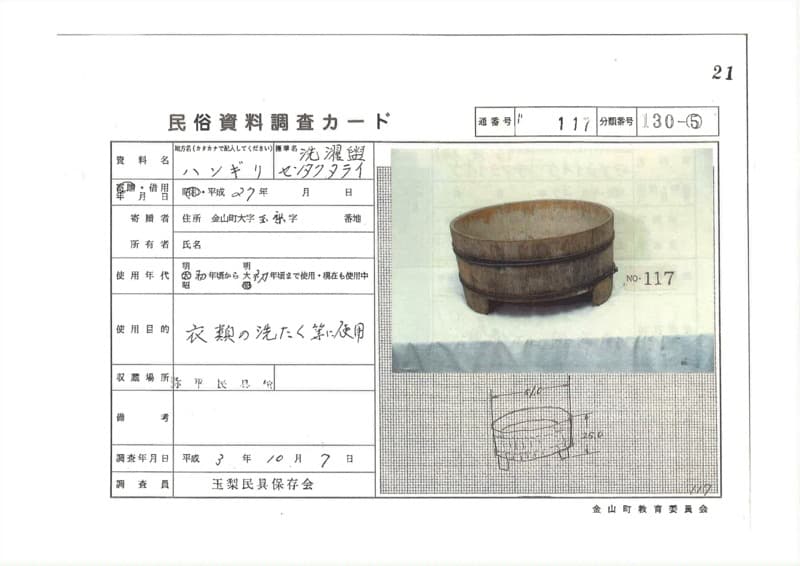 21
民俗資料調査カード
通番号 117 分類番号 130-⑤
資料名 地方名(カタカナで記入してください) ハンギリ 標準名 洗濯盥 センタクタライ
寄贈・借用年月日 昭和・平成 27年 月 日
寄贈者 住所 金山町大字玉梨字 番地
所有者 氏名
使用年代 明大昭 初年頃から 明大昭 初年頃まで使用・現在も使用中
使用目的 衣類の洗たく等に使用
収蔵場所
備考
調査年月日 平成 3年 10月 7日
調査員 玉梨民具保存会
NO.117
61.0
25.0
117
金山町教育委員会